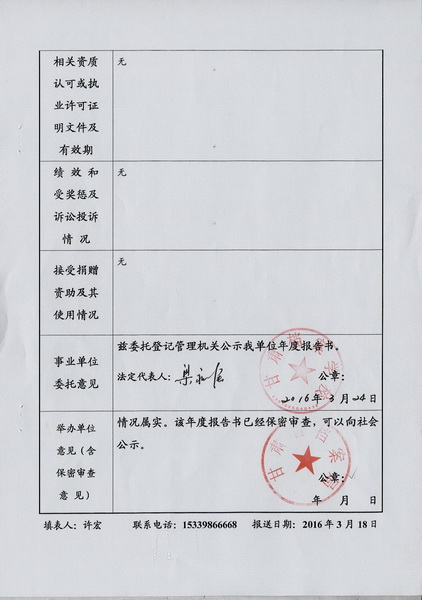 相关资质
认可或执
业许可证
明文件及
有效期
无
绩效和
受奖惩及
诉讼投诉
情况
无
接受捐赠
资助及其
使用情况
无
事业单位
委托意见
兹委托登记管理机关公示我单位年度报告书。
法定代表人：
公章：
2016年3月24日
举办单位
意见（含
保密审查
意见）
情况属实。该年度报告书已经保密审查，可以向社会
公示。
公章：
年 月 日
填表人：许宏 联系电话：15339866668 报送日期：2016年3月18日